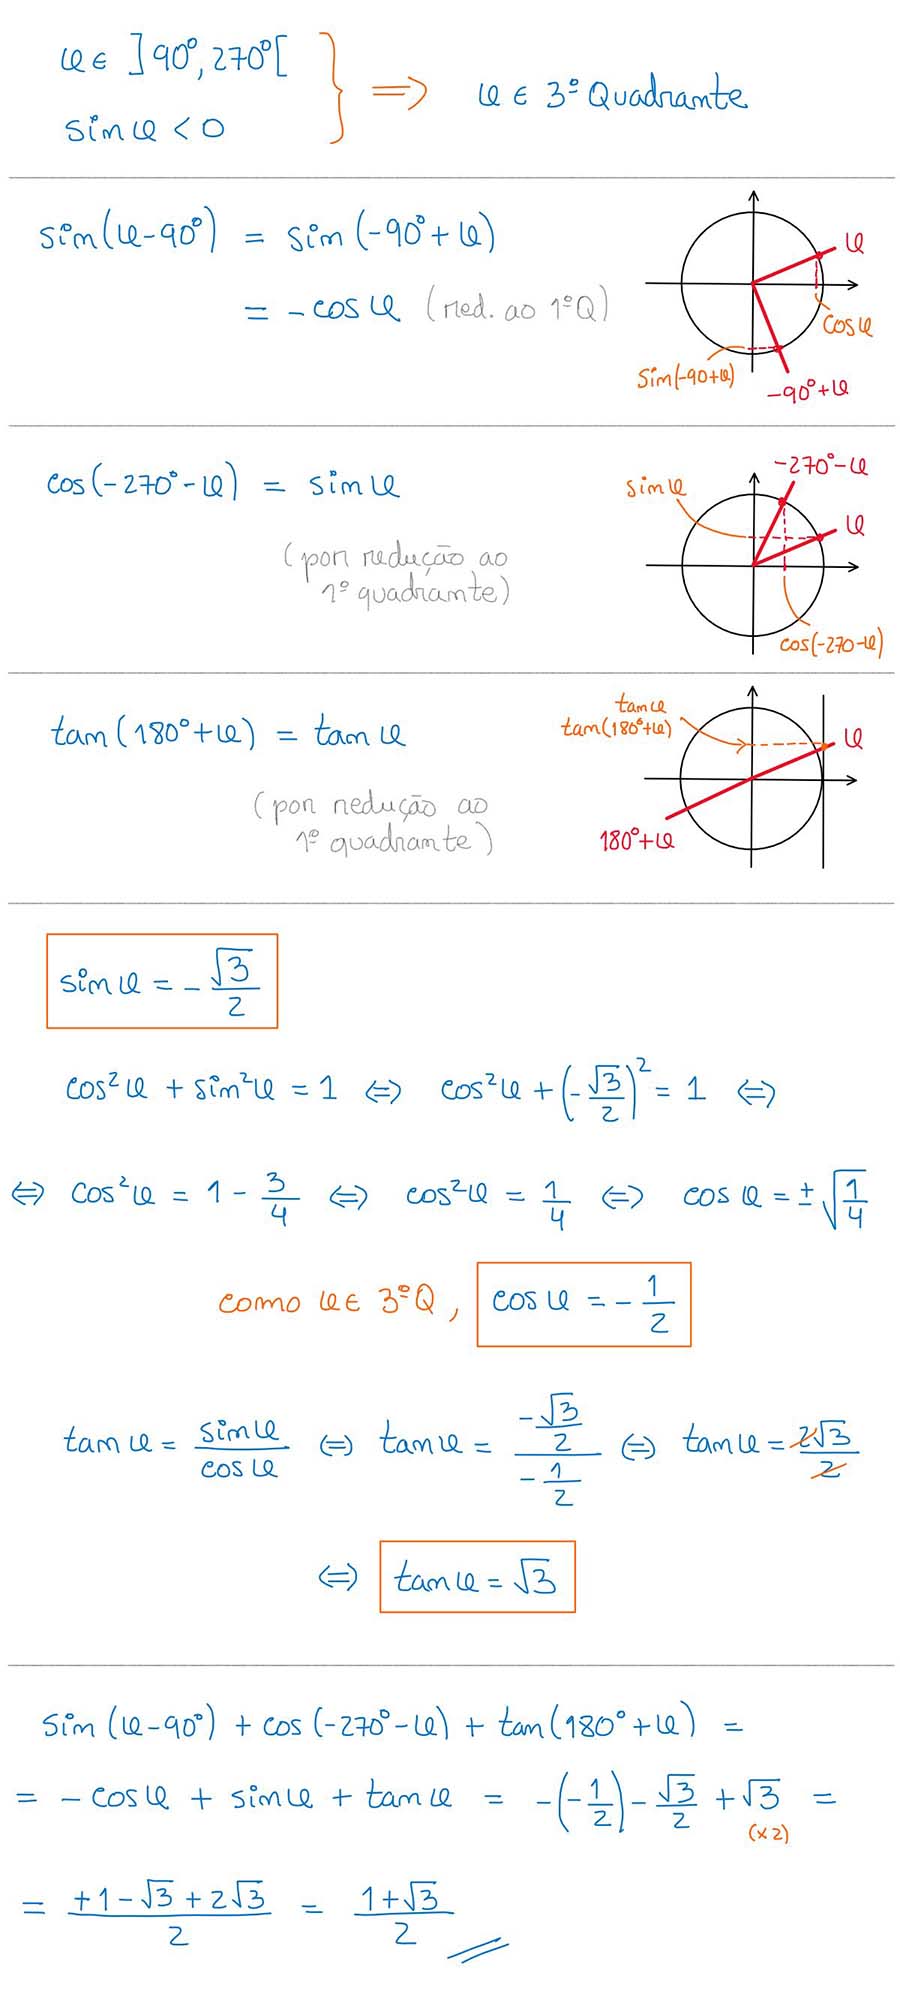 φ ∈ ]90°, 270°[
sin φ < 0
} ⟹ φ ∈ 3º Quadrante
sin(φ-90°) = sin(-90°+φ)
= -cos φ (red. ao 1ºQ)
φ
cos φ
sin(-90+φ)
-90°+φ
cos(-270°-φ) = sin φ
(por redução ao
1º quadrante)
-270°-φ
sin φ
φ
cos(-270-φ)
tan(180°+φ) = tan φ
(por redução ao
1º quadrante)
tan φ
tan(180°+φ)
φ
180°+φ
sin φ = -√3/2
cos²φ + sin²φ = 1 ⇔ cos²φ + (-√3/2)² = 1 ⇔
⇔ cos²φ = 1 - 3/4 ⇔ cos²φ = 1/4 ⇔ cos φ = ±√(1/4)
como φ ∈ 3ºQ, cos φ = -1/2
tan φ = sin φ/cos φ ⇔ tan φ = (-√3/2)/(-1/2) ⇔ tan φ = 2√3/2
⇔ tan φ = √3
sin(φ-90°) + cos(-270°-φ) + tan(180°+φ) =
= -cos φ + sin φ + tan φ = -(-1/2) - √3/2 + √3 =
(×2)
= (+1-√3+2√3)/2 = (1+√3)/2